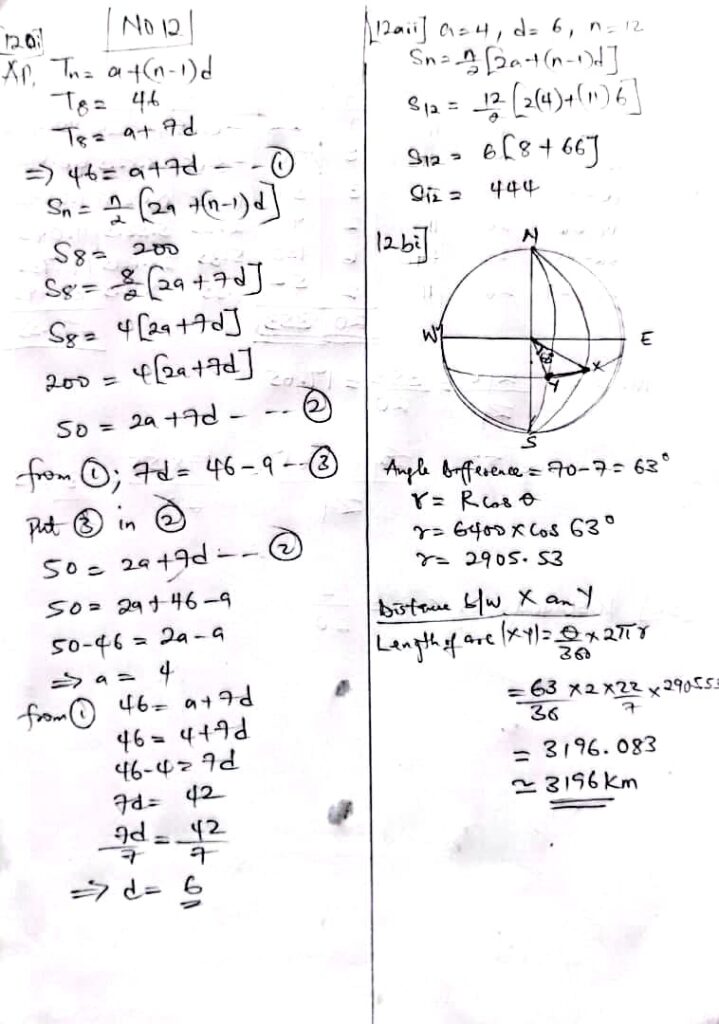 No 12
12ai]
AP, Tn = a+(n-1)d
T8 = 46
T8 = a+7d
⇒ 46 = a+7d --- ①
Sn = n/2 [2a+(n-1)d]
S8 = 200
S8 = 8/2 [2a+7d]
S8 = 4[2a+7d]
200 = 4[2a+7d]
50 = 2a+7d - -- ②
from ①; 7d = 46-a -- ③
Put ③ in ②
50 = 2a+7d -- - ②
50 = 2a+46-a
50-46 = 2a-a
⇒ a = 4
from ① 46 = a+7d
46 = 4+7d
46-4 = 7d
7d = 42
7d/7 = 42/7
⇒ d = 6
12aii] a=4, d=6, n=12
Sn = n/2 [2a+(n-1)d]
S12 = 12/2 [2(4)+(11)6]
S12 = 6[8+66]
S12 = 444
12bi]
N
W E
63
Y X
S
Angle Difference = 70-7 = 63°
r = R cos θ
r = 6400 x cos 63°
r = 2905.53
Distance b/w X and Y
Length of arc |XY| = θ/360 x 2πr
= 63/36 x 2 x 22/7 x 290553
= 3196.083
≃ 3196 km